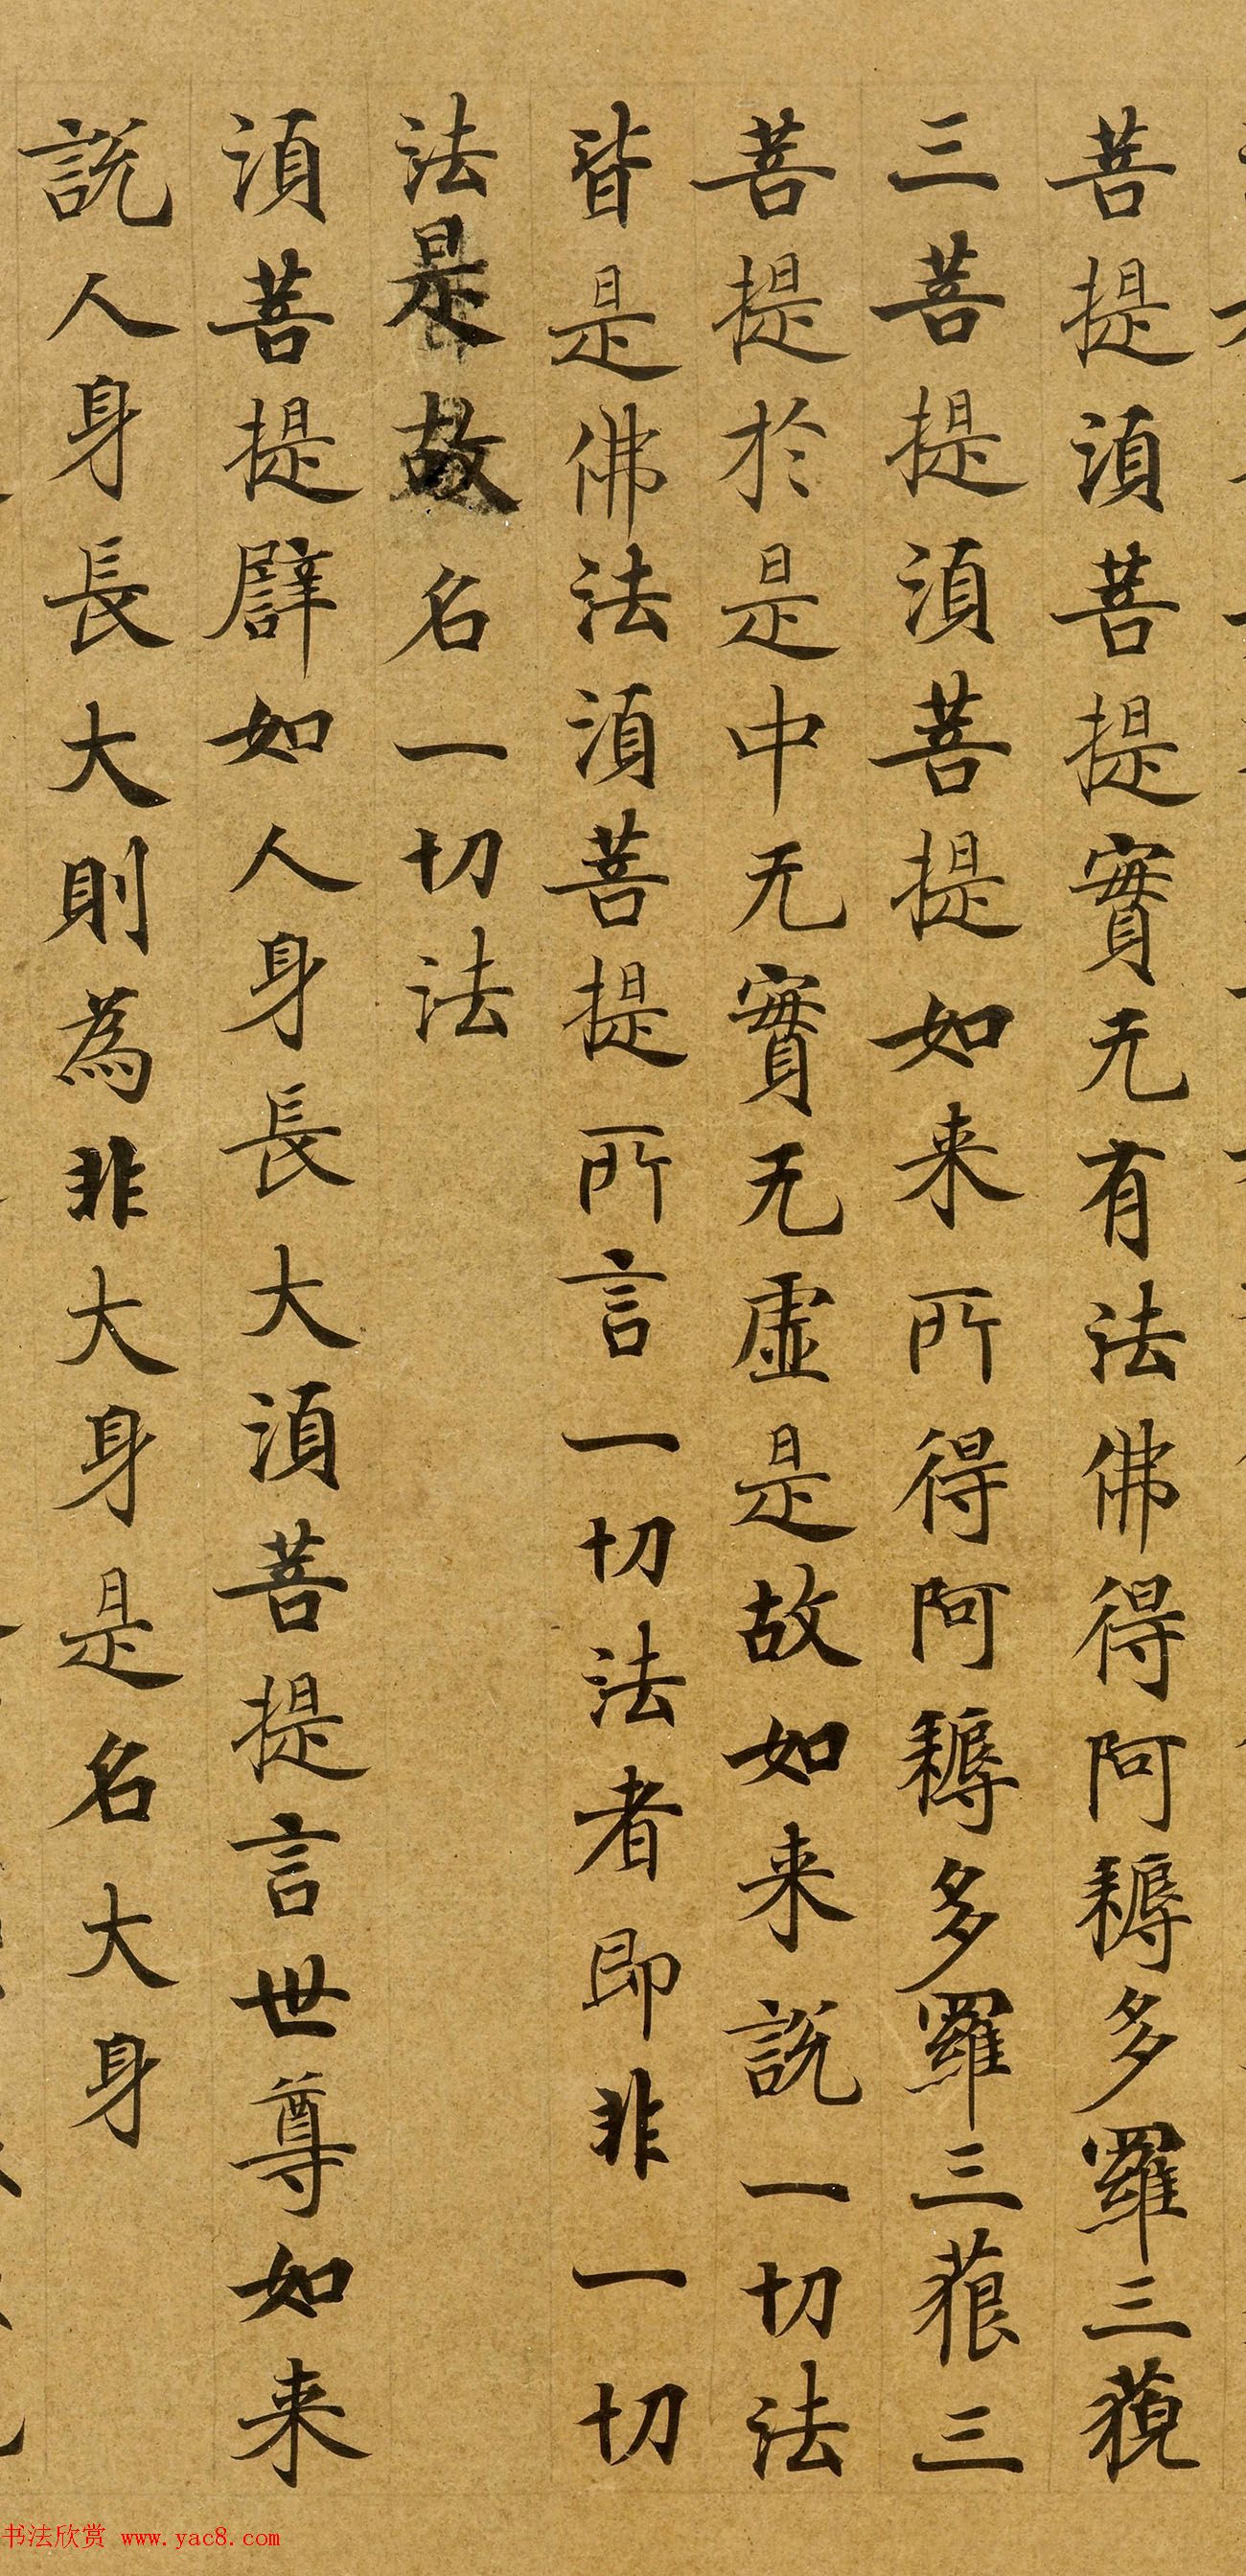 菩提須菩提實无有法佛得阿耨多羅三藐
三菩提須菩提如来所得阿耨多羅三藐三
菩提於是中无實无虛是故如来說一切法
皆是佛法須菩提所言一切法者即非一切
法是故名一切法
須菩提譬如人身長大須菩提言世尊如来
說人身長大則為非大身是名大身
书法欣赏 www.yac8.com